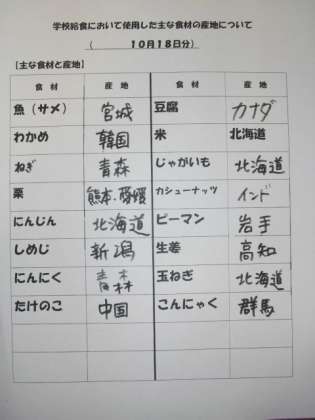 学校給食において使用した主な食材の産地について
( 10月18日分)
【主な食材と産地】
食 材 産 地 食 材 産 地
魚(サメ) 宮城 豆腐 カナダ
わかめ 韓国 米 北海道
ねぎ 青森 じゃがいも 北海道
栗 熊本・愛媛 カシューナッツ インド
にんじん 北海道 ピーマン 岩手
しめじ 新潟 生姜 高知
にんにく 青森 玉ねぎ 北海道
たけのこ 中国 こんにゃく 群馬